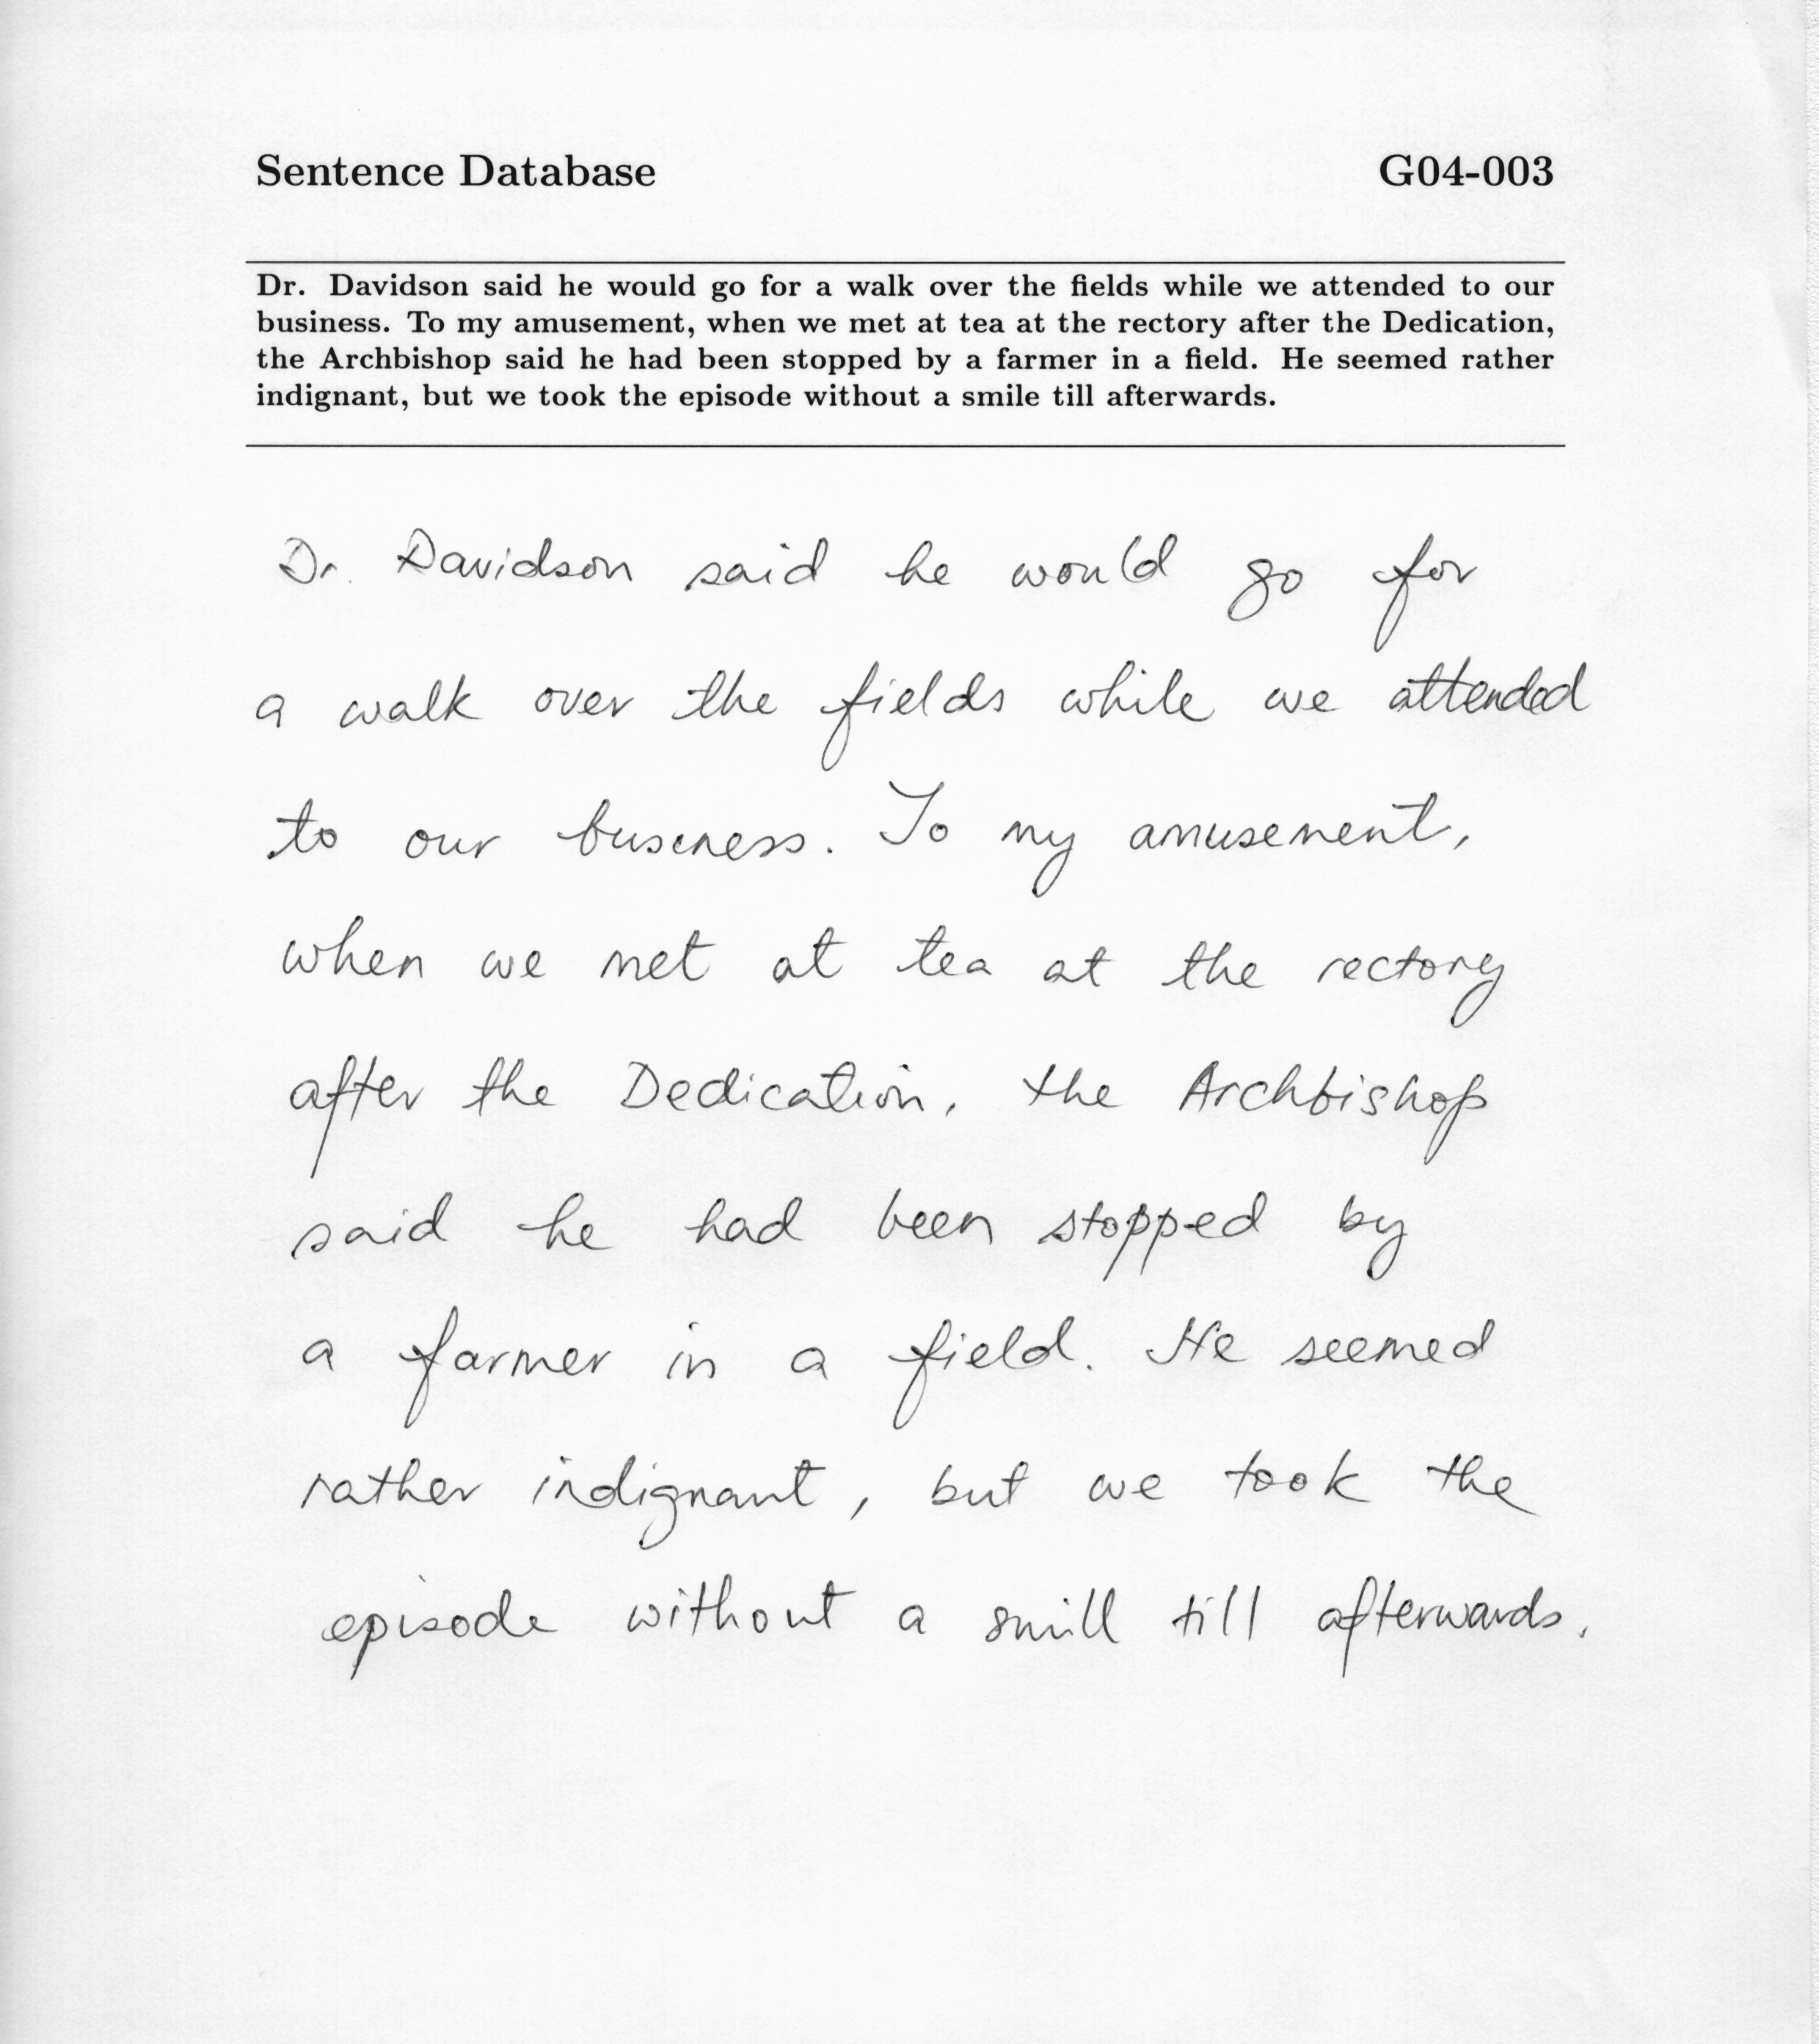 Sentence Database G04-003
Dr. Davidson said he would go for a walk over the fields while we attended to our
business. To my amusement, when we met at tea at the rectory after the Dedication,
the Archbishop said he had been stopped by a farmer in a field. He seemed rather
indignant, but we took the episode without a smile till afterwards.
Dr. Davidson said he would go for
a walk over the fields while we attended
to our business. To my amusement,
when we met at tea at the rectory
after the Dedication, the Archbishop
said he had been stopped by
a farmer in a field. He seemed
rather indignant, but we took the
episode without a smill till afterwards.